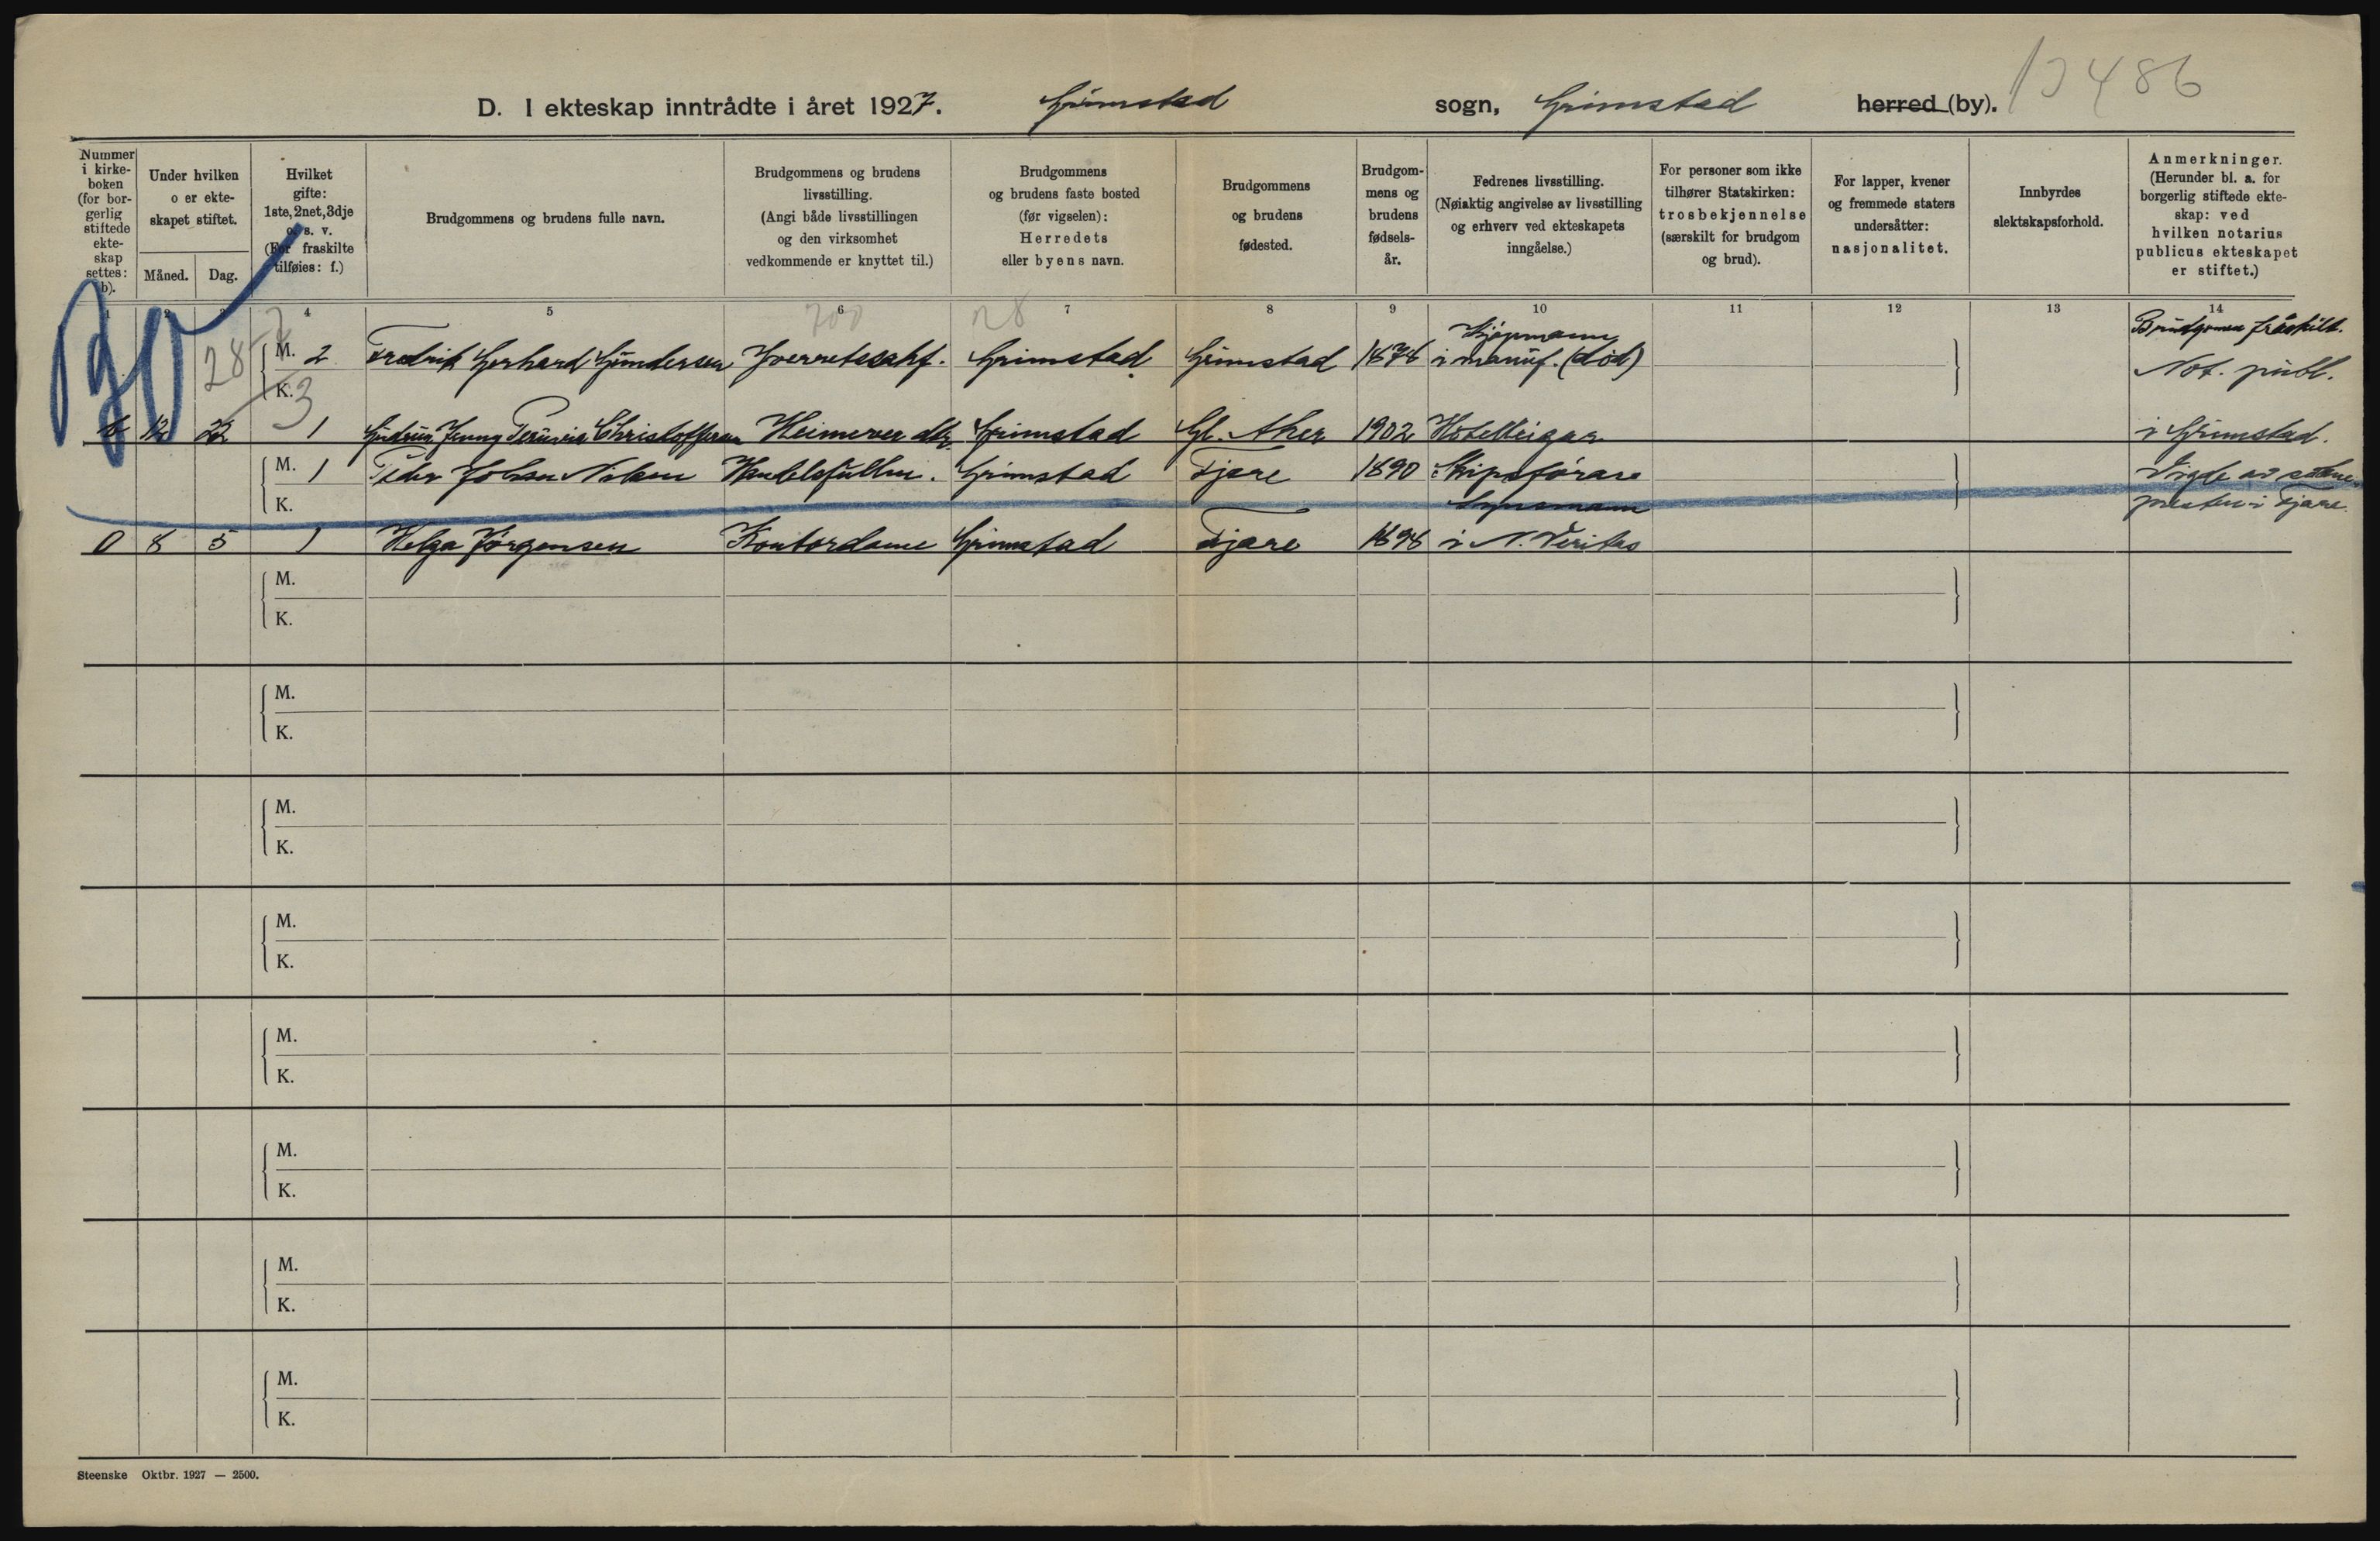 D. I ekteskap inntrådte i året 1927. Grimstad sogn, Grimstad herred (by). 13486
Nummer i kirkeboken (for borgerlig stiftede ekteskap settes: b).
Under hvilken o er ekteskapet stiftet.
Måned. Dag.
Hvilket gifte: 1ste, 2net, 3dje o. s. v. (For fraskilte tilføies: f.)
Brudgommens og brudens fulle navn.
Brudgommens og brudens livsstilling. (Angi både livsstillingen og den virksomhet vedkommende er knyttet til.)
Brudgommens og brudens faste bosted (før vigselen): Herredets eller byens navn.
Brudgommens og brudens fødested.
Brudgommens og brudens fødselsår.
Fedrenes livsstilling. (Nøiaktig angivelse av livsstilling og erhverv ved ekteskapets inngåelse.)
For personer som ikke tilhører Statskirken: trosbekjennelse (særskilt for brudgom og brud).
For lapper, kvener og fremmede staters undersåtter: nasjonalitet.
Innbyrdes slektskapsforhold.
Anmerkninger. (Herunder bl. a. for borgerlig stiftede ekteskap: ved hvilken notarius publicus ekteskapet er stiftet.)
1 2 3 4 5 6 7 8 9 10 11 12 13 14
28 700 28
M. 2 Fredrik Gerhard Gundersen Overretssakf. Grimstad Grimstad 1878 Kjøpmann i manuf. (død) Brudgomen fråskilt. Not. publ.
K.
b 12 22 1 Gudrun Jenny Christoffersen Heimever. Grimstad Gl. Aker 1902 Hotelleigar i Grimstad.
M. 1 Peder Johan Nilsen Handelsfullm. Grimstad Fjære 1890 Skipsførare Vigde av
K. presten i Fjære.
0 8 5 1 Helga Jørgensen Kontordame Grimstad Fjære 1898 Synsmann i N. Veritas
M.
K.
M.
K.
M.
K.
M.
K.
M.
K.
M.
K.
M.
K.
M.
K.
Steenske Oktbr. 1927 — 2500.